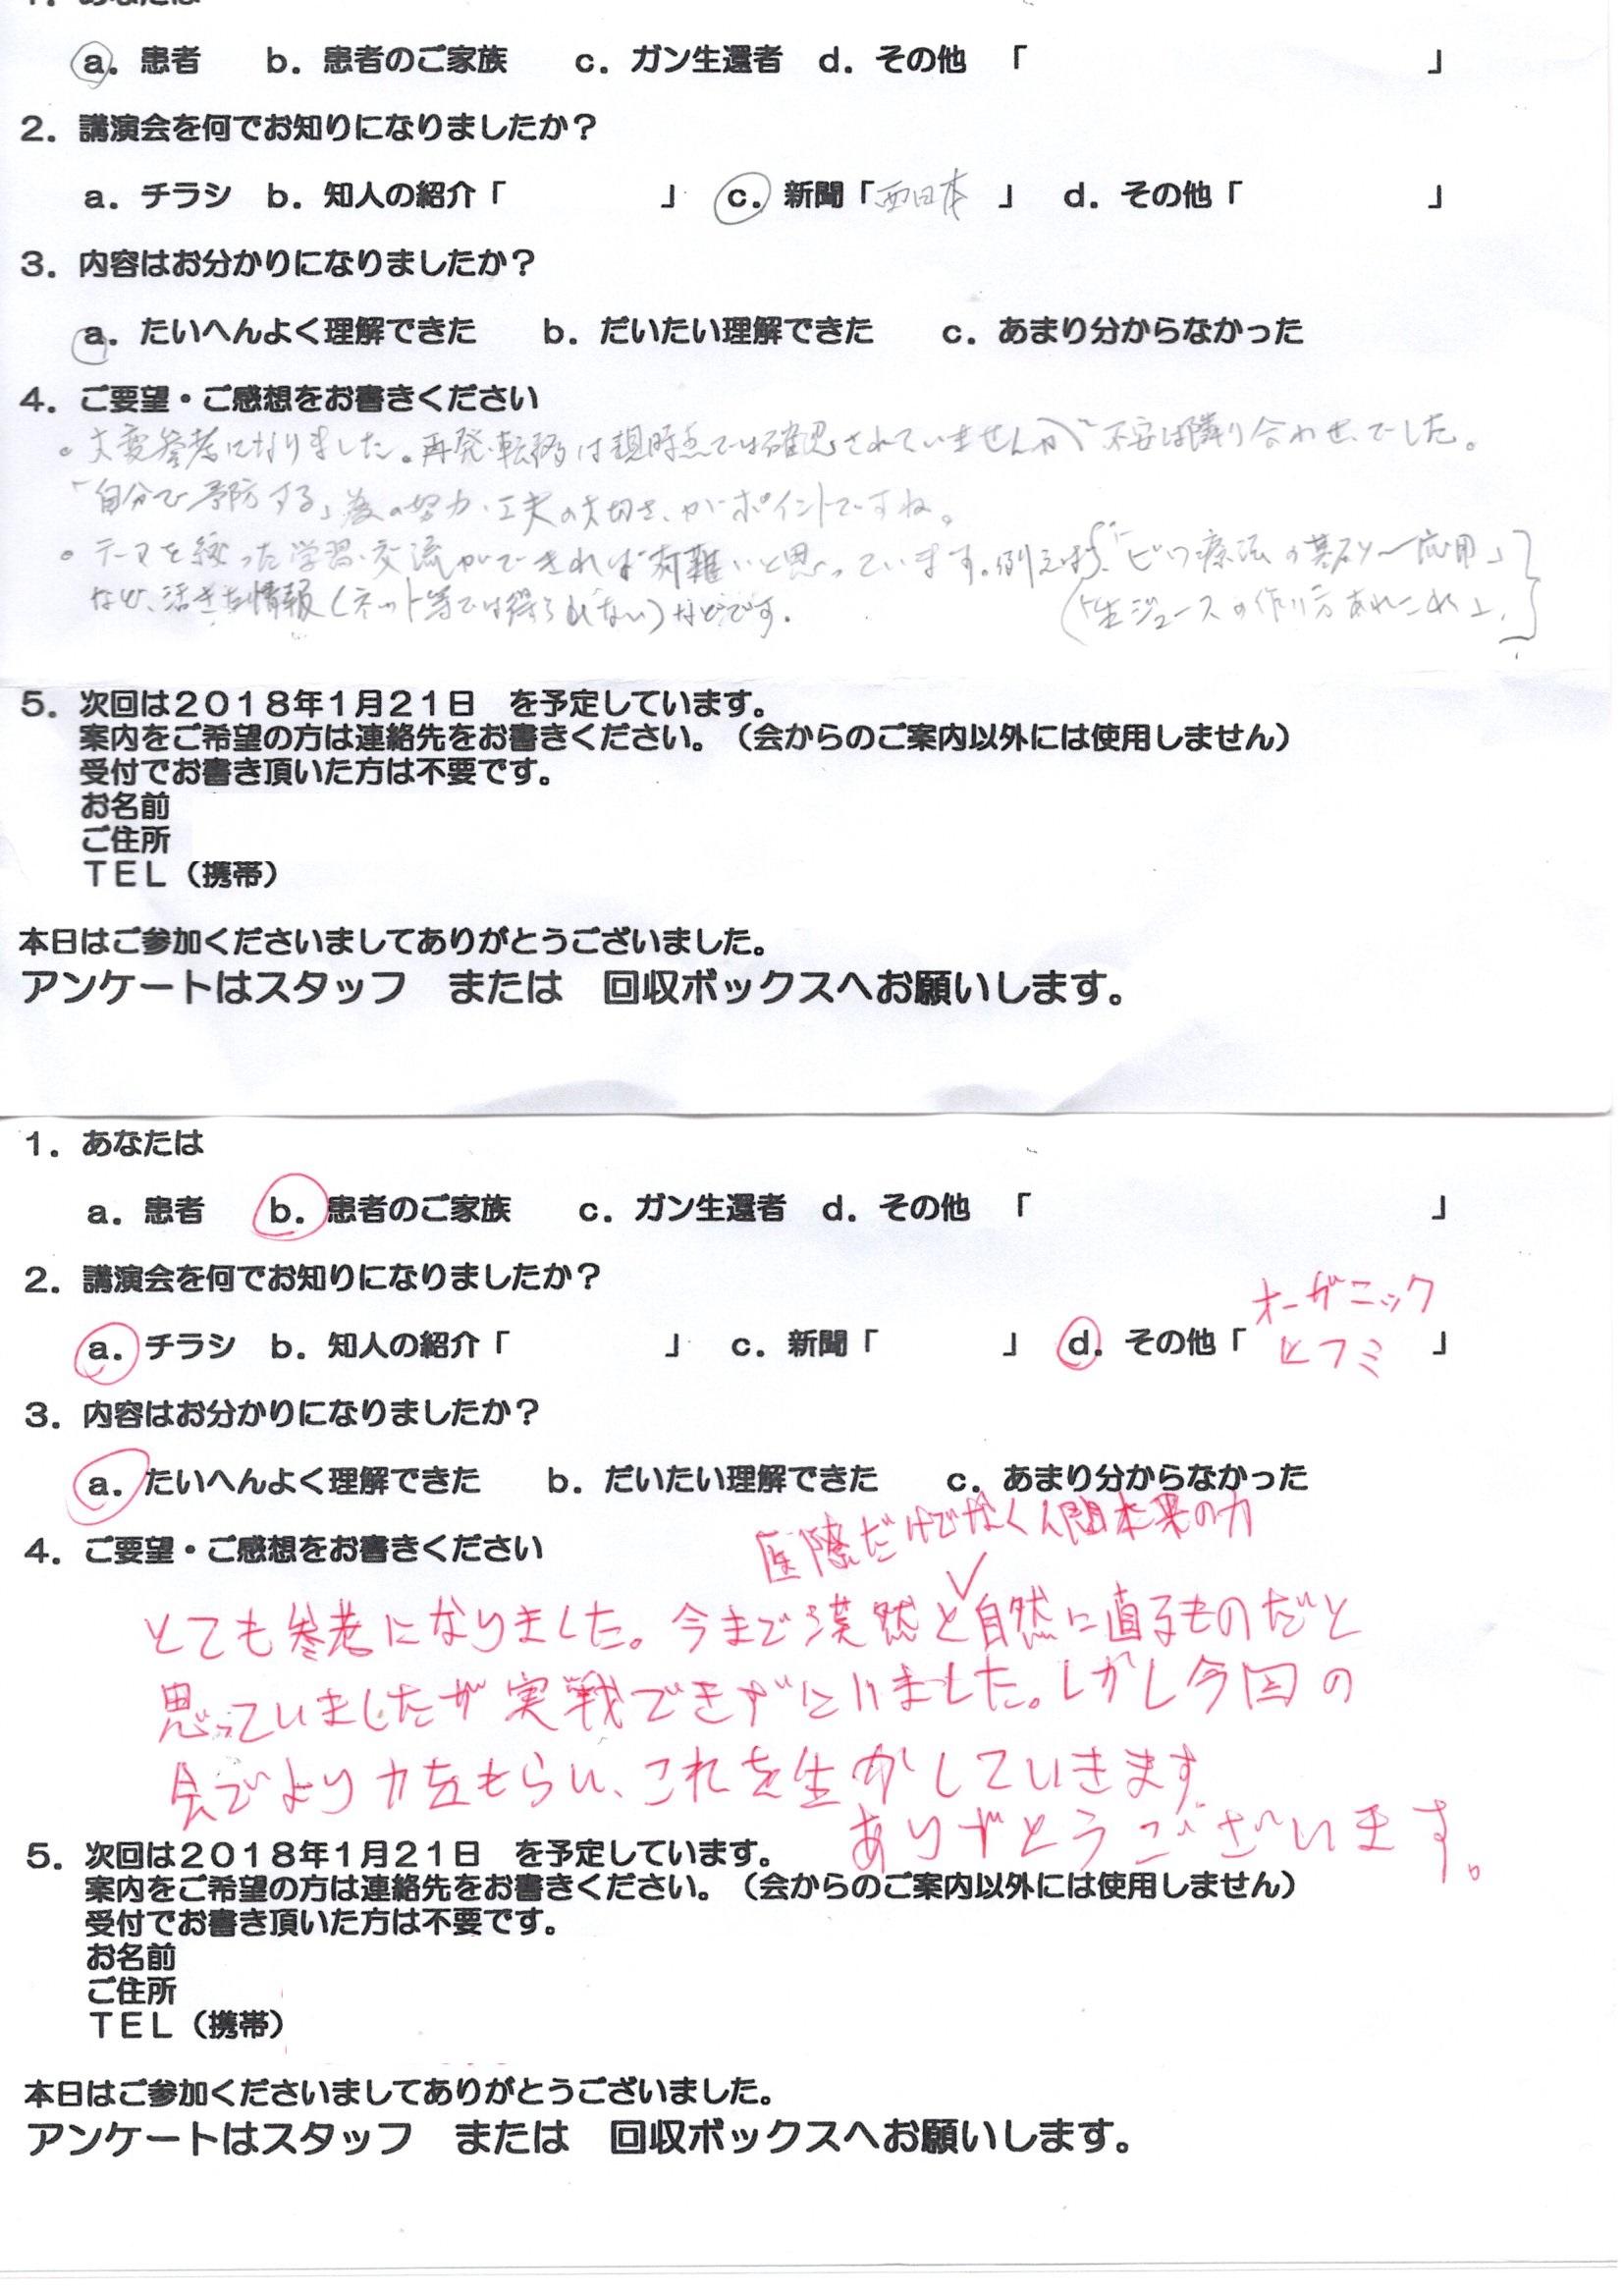 1. あなたは
a. 患者 b. 患者のご家族 c. ガン生還者 d. その他 「 」
2. 講演会を何でお知りになりましたか？
a. チラシ b. 知人の紹介「 」 c. 新聞「西日本 」 d. その他「 」
3. 内容はお分かりになりましたか？
a. たいへんよく理解できた b. だいたい理解できた c. あまり分からなかった
4. ご要望・ご感想をお書きください
。大変参考になりました。再発、転移は現時点では確認されていませんが、不安は隣り合わせでした。
「自分で予防する」為の努力、工夫の大切さ、がポイントですね。
。テーマを絞った学習、交流ができれば有難いと思っています。例えば、「ビワ療法の基礎〜応用」
など、活きた情報（ネット等では得られない）などです。 「生ジュースの作り方あれこれ」
5. 次回は2018年1月21日 を予定しています。
案内をご希望の方は連絡先をお書きください。（会からのご案内以外には使用しません）
受付でお書き頂いた方は不要です。
お名前
ご住所
TEL（携帯）
本日はご参加くださいましてありがとうございました。
アンケートはスタッフ または 回収ボックスへお願いします。
1. あなたは
a. 患者 b. 患者のご家族 c. ガン生還者 d. その他 「 」
2. 講演会を何でお知りになりましたか？
オーガニック
a. チラシ b. 知人の紹介「 」 c. 新聞「 」 d. その他「 ヒフミ 」
3. 内容はお分かりになりましたか？
a. たいへんよく理解できた b. だいたい理解できた c. あまり分からなかった
4. ご要望・ご感想をお書きください
医療だけでなく人間本来の力
とても参考になりました。今まで漠然と自然に直るものだと
思っていましたが実戦できずにいました。しかし今回の
会でより力をもらい、これを生かしていきます
ありがとうございます。
5. 次回は2018年1月21日 を予定しています。
案内をご希望の方は連絡先をお書きください。（会からのご案内以外には使用しません）
受付でお書き頂いた方は不要です。
お名前
ご住所
TEL（携帯）
本日はご参加くださいましてありがとうございました。
アンケートはスタッフ または 回収ボックスへお願いします。